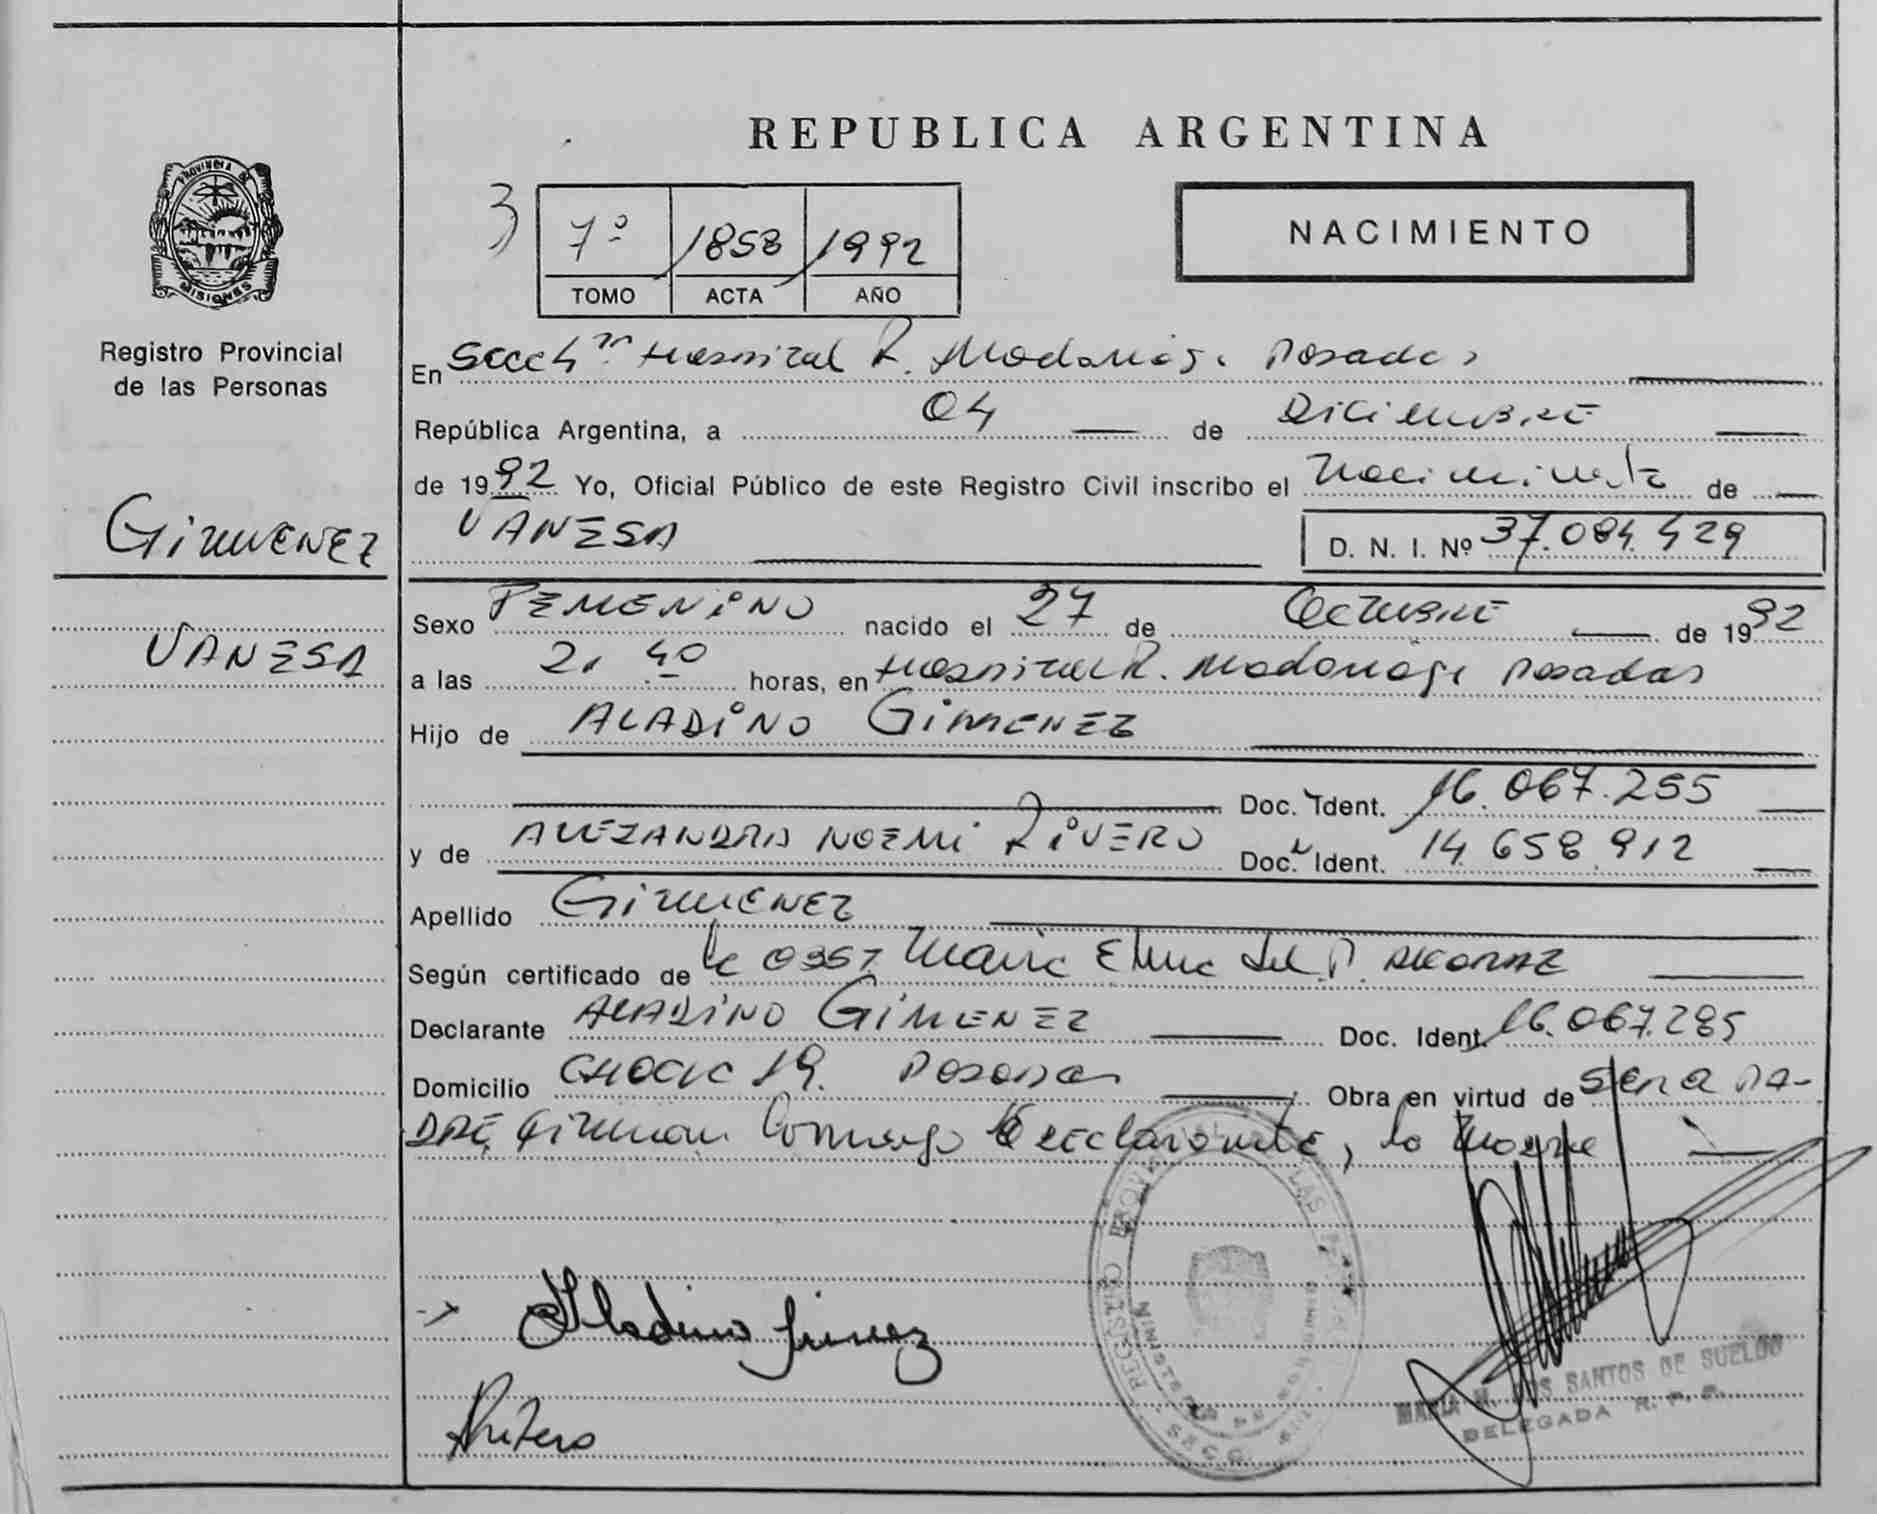 REPUBLICA ARGENTINA
PROVINCIA DE
MISIONES
Registro Provincial
de las Personas
3
7º 1858 1992
TOMO ACTA AÑO
NACIMIENTO
En Secc 4ta Hospital R. Madariaga Posadas
República Argentina, a 04 de Diciembre
de 1992 Yo, Oficial Público de este Registro Civil inscribo el Nacimiento de
GIMENEZ
VANESA D. N. I. Nº 37.084.429
Sexo FEMENINO nacido el 27 de Octubre de 1992
VANESA
a las 21 40 horas, en Hospital R. Madariaga Posadas
Hijo de ALADINO GIMENEZ
Doc. Ident. 16.067.255
y de ALEJANDRA NOEMI RIVERO Doc. Ident. 14.658.912
Apellido GIMENEZ
Según certificado de 0357 Maria del P. ALCARAZ
Declarante ALADINO GIMENEZ Doc. Ident. 16.067.285
Domicilio 19. Posadas Obra en virtud de Ser el PA-
DRE, firman Conmigo el declarante, la Madre
Aladino Gimenez
ARivero
MARIA N. DOS SANTOS DE SUELDO
DELEGADA R. P. P.